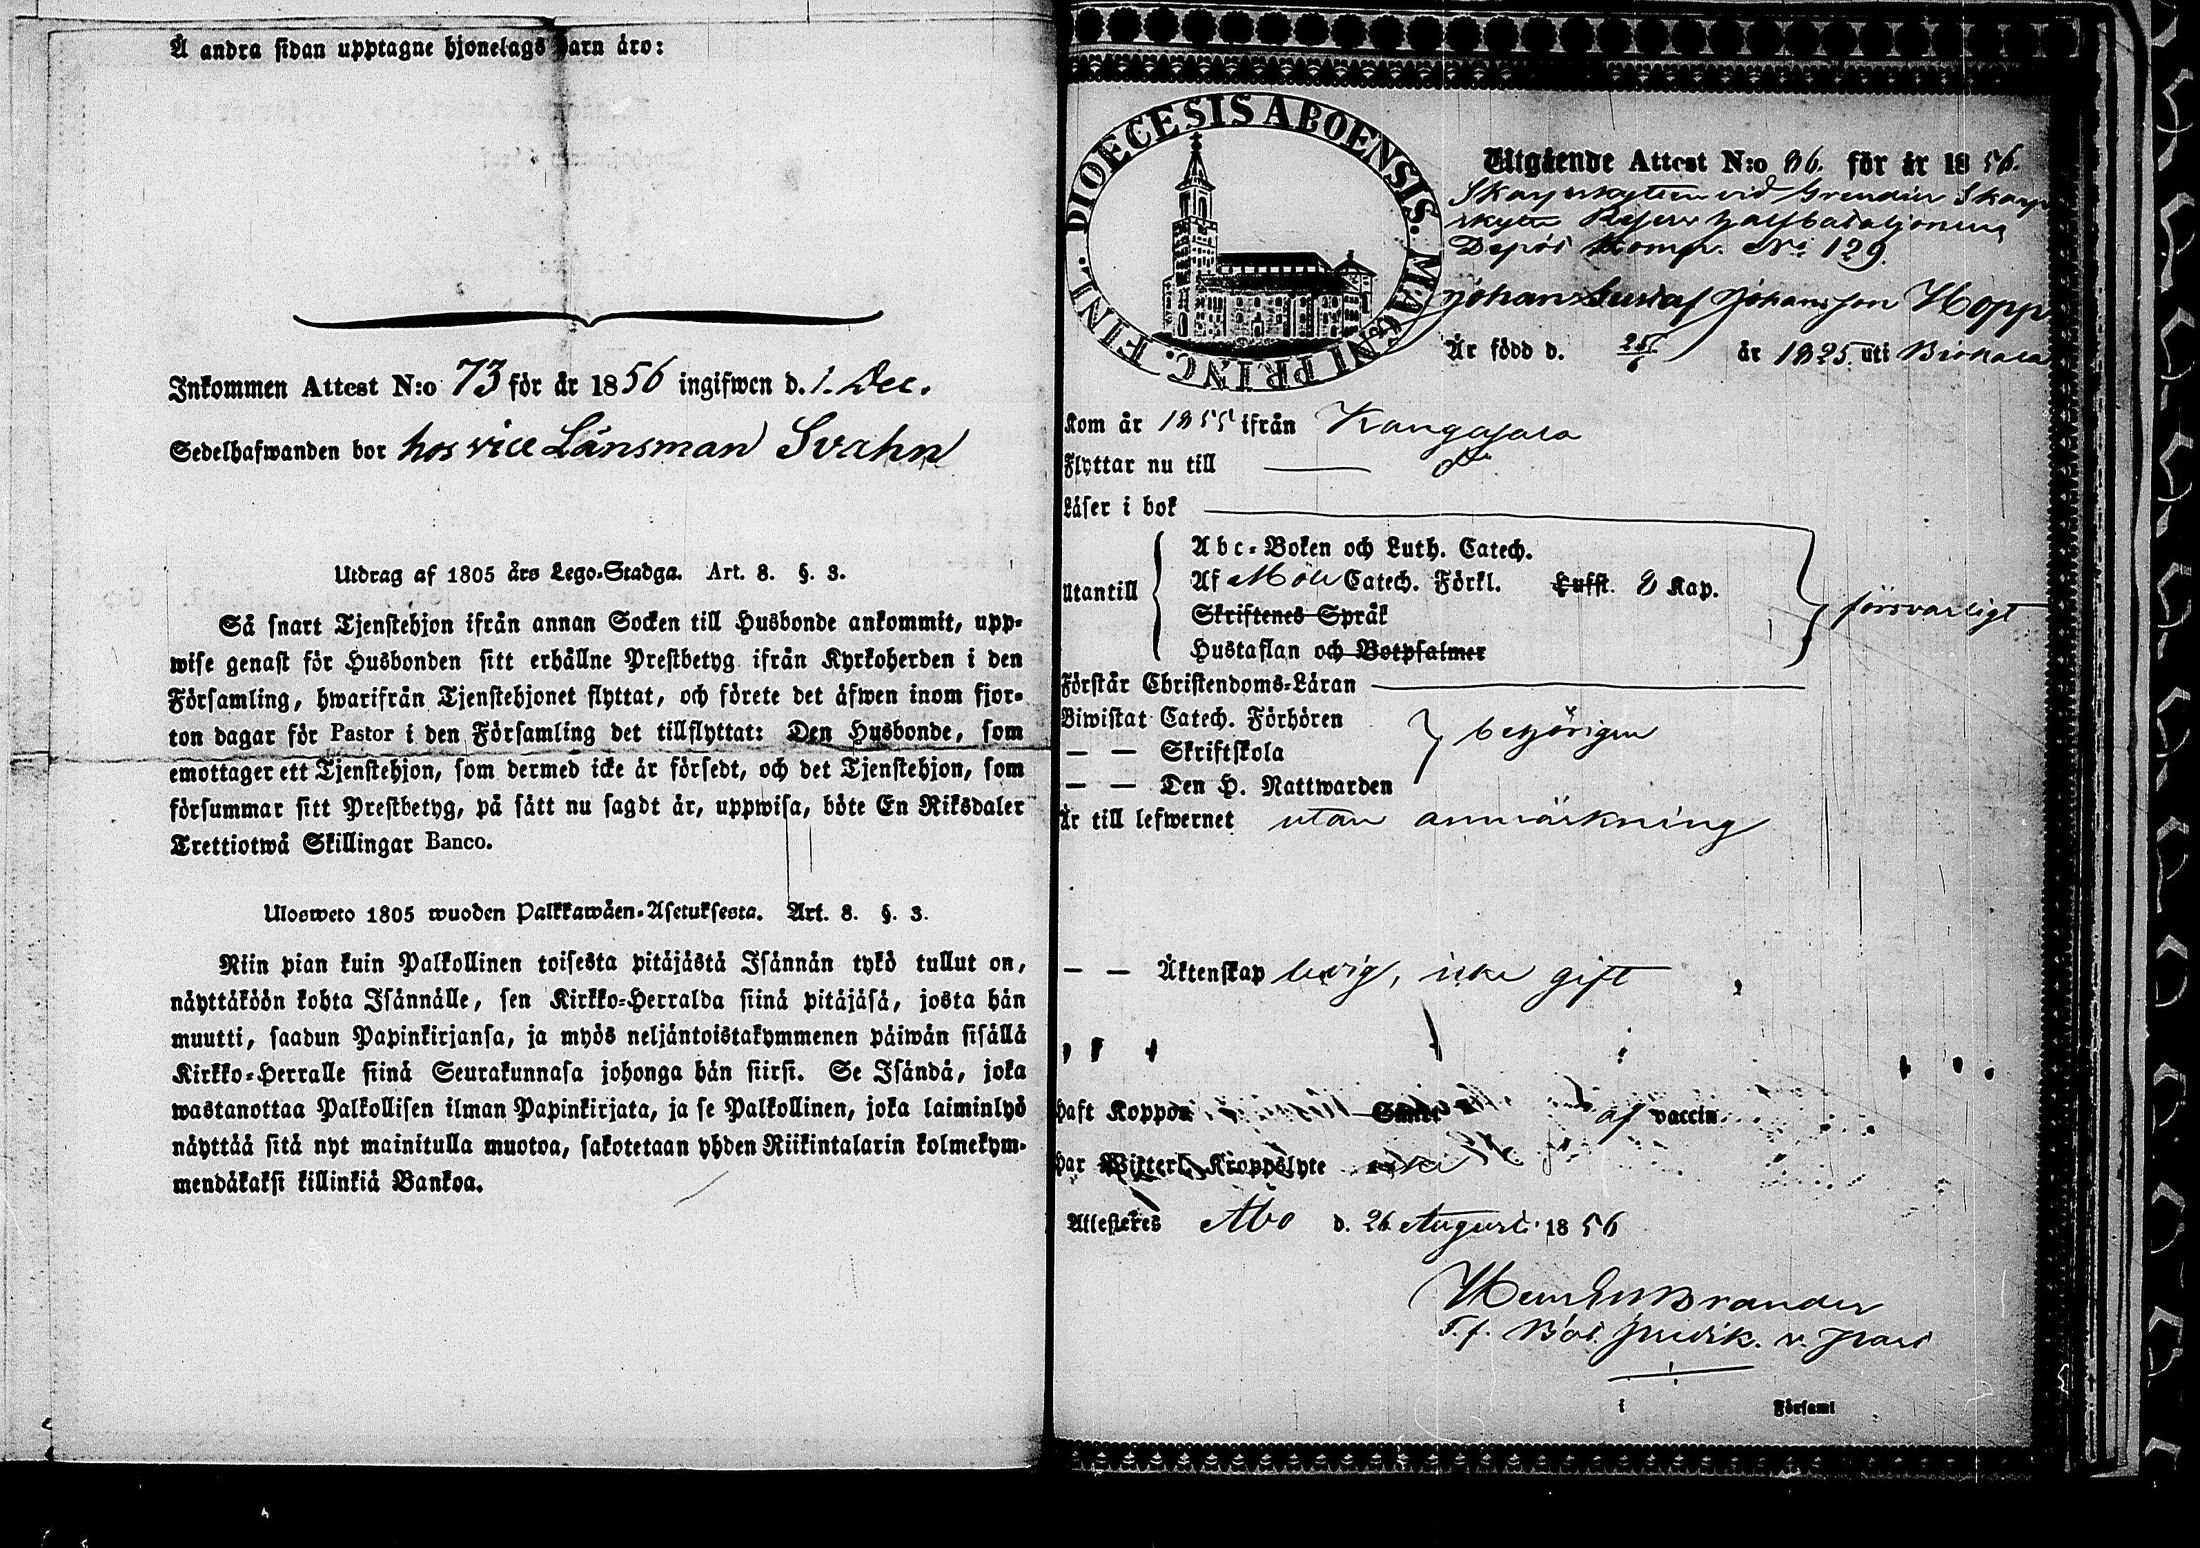 Å andra sidan upptagne hjonelags barn äro:
Inkommen Attest N:o 73 för år 1856 ingifwen d. 1. Dec.
Sedelhafwanden bor hos vice Länsman Svahn
Utdrag af 1805 års Lego-Stadga. Art. 8. §. 3.
Så snart Tjenstehjon ifrån annan Socken till Husbonde ankommit, upp-
wise genast för Husbonden sitt erhållne Prestbetyg ifrån Kyrkoherden i den
Församling, hwarifrån Tjenstehjonet flyttat, och förete det äfwen inom fjor-
ton dagar för Pastor i den Församling det tillflyttat: Den Husbonde, som
emottager ett Tjenstehjon, som dermed icke är försedt, och det Tjenstehjon, som
försummar sitt Prestbetyg, på sätt nu sagdt är, uppwisa, böte En Riksdaler
Trettiotwå Skillingar Banco.
Ulosweto 1805 wuoden Palkkawäen-Asetuksesta. Art. 8. §. 3.
Niin pian kuin Palkollinen toisesta pitäjästä Isännän tykö tullut on,
näyttäköön kohta Isännälle, sen Kirkko-Herralda siinä pitäjäsä, josta hän
muutti, saadun Papinkirjansa, ja myös neljäntoistakymmenen päiwän sisällä
Kirkko-Herralle siinä Seurakunnasa johonga hän siirsi. Se Isändä, joka
wastanottaa Palkollisen ilman Papinkirjata, ja se Palkollinen, joka laiminlyö
näyttää sitä nyt mainitulla muotoa, sakotetaan yhden Riikintalarin kolmekym-
mendäkaksi killinkiä Bankoa.
DIOECESIS ABOENSIS. MAGNI PRINC. FINL.
Utgående Attest N:o 86. för år 1856.
Skarpskytten vid Grenadier Skarp
skytte Reserv halfbataljonens
Depôt Komp. No 129.
Johan Gustaf Johansson Hopp
Är född d. 25/6 år 1825 uti Birkala
Kom år 1855 ifrån Kangasala
Flyttar nu till
Läser i bok
Utantill
Abc-Boken och Luth. Catech.
Af Möll. Catech. Förkl. Lufft. 8 Kap.
Skriftenes Språk
Hustaflan och Botpsalmer
försvarligt
Förstår Christendoms-Läran
Biwistat Catech. Förhören
— — Skriftskola
— — Den H. Nattwarden
behörigen
Är till lefwernet utan anmärkning
— — Äktenskap ledig, icke gift
Haft Koppor af vaccin
Har Witterl. Kroppslyte
Attesteres Åbo d. 26 Augusti 1856
Brander
T. f. Bat. Predik. v. Past
i Församl